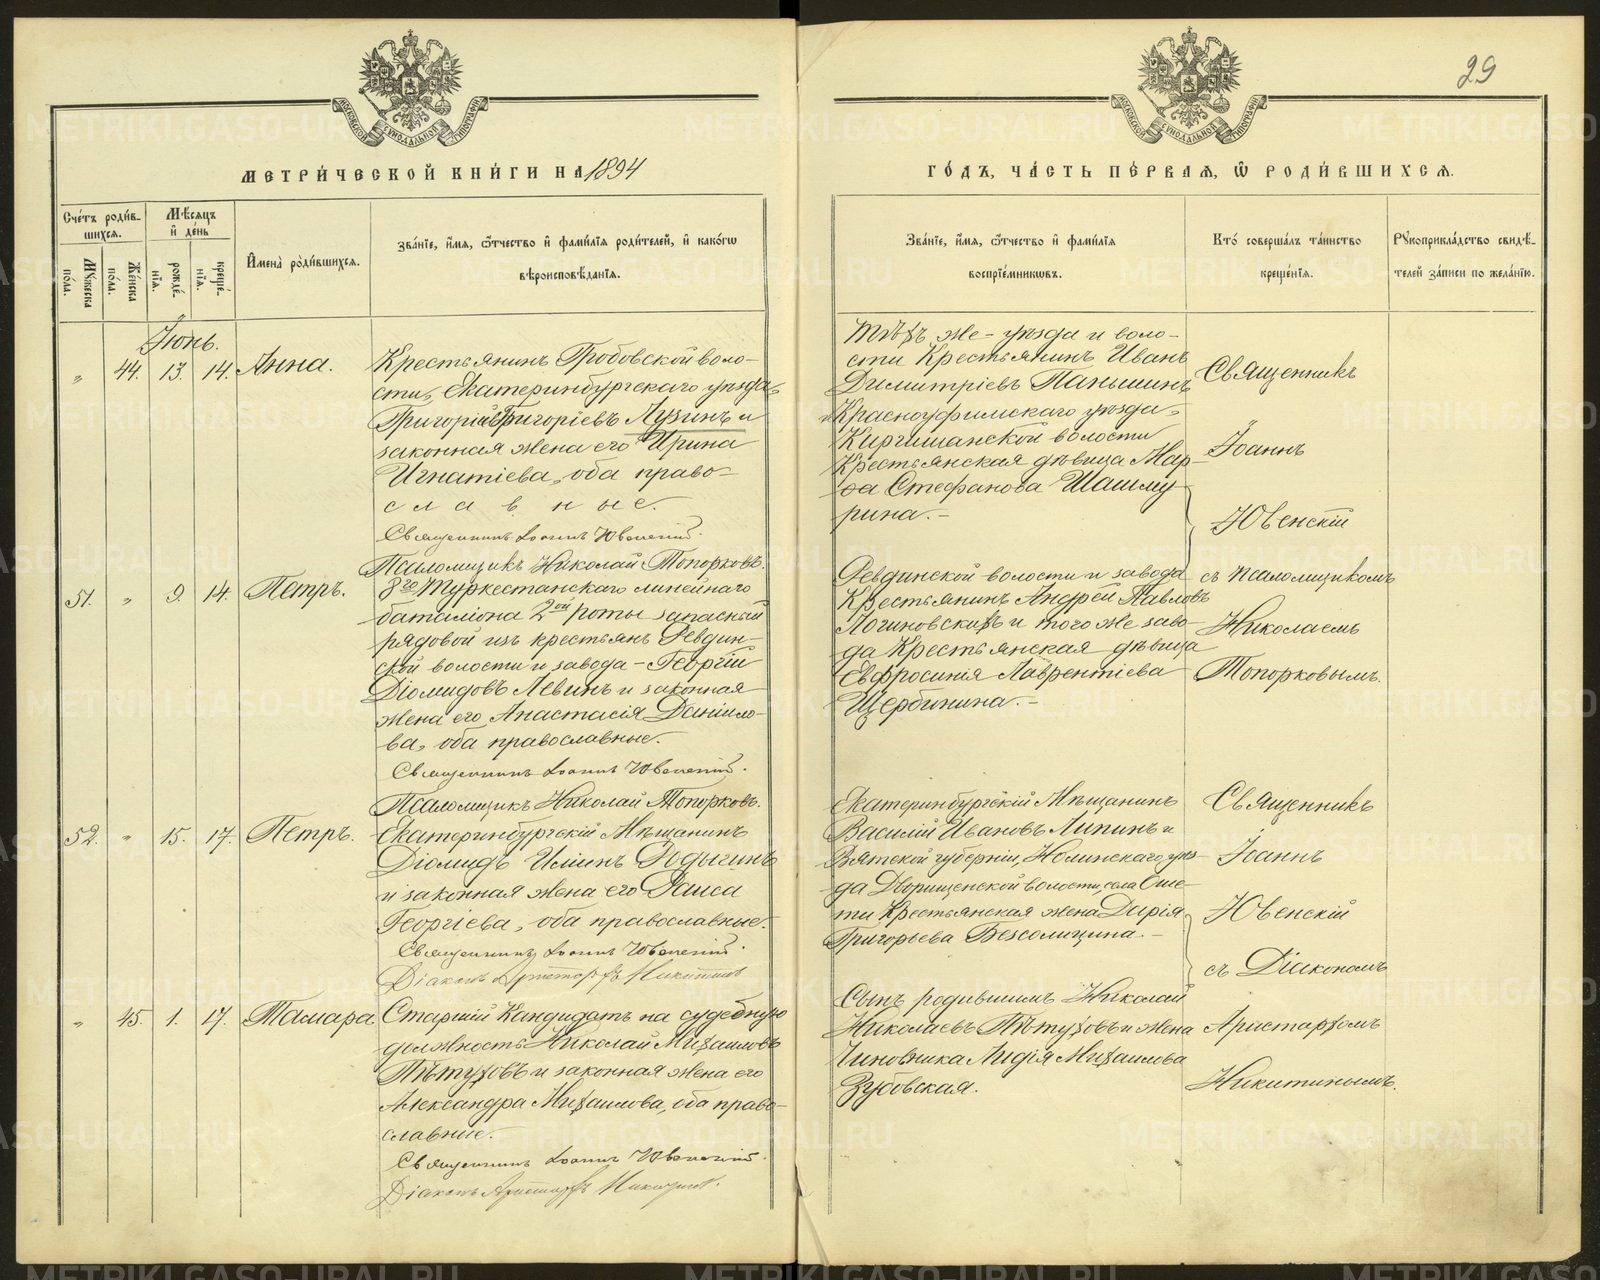 29
МОСКОВСКОЙ СѴНОДАЛЬНОЙ ТИПОГРАФІИ
МОСКОВСКОЙ СѴНОДАЛЬНОЙ ТИПОГРАФІИ
МЕТРИ́ЧЕСКОЙ КНИ́ГИ НА 1894
ГО́ДЪ, ЧА́СТЬ ПЕ́РВАѦ, Ѿ РОДИ́ВШИХСѦ.
Сче́тъ роди́в-
шихсѧ.
Мꙋ́жеска по́ла.
Же́нска по́ла.
Мѣ́сѧцъ
и҆ де́нь
рожде́нїѧ.
креще́нїѧ.
И҆мена̀ роди́вшихсѧ.
Зва́нїе, и҆́мѧ, ѻ҆́тчество и҆ фами́лїѧ роди́телей, и҆ како́гѡ
вѣроисповѣ́данїѧ.
Зва́нїе, и҆́мѧ, ѻ҆́тчество и҆ фами́лїѧ
воспрїе́мникѡвъ.
Кто̀ соверша́лъ та́инство
креще́нїѧ.
Рꙋкоприкла́дство свидѣ́-
телей за́писи по жела́нїю.
Іюнь.
„ 44. 13. 14. Анна.
Крестьянинъ Гробовской воло-
сти, Екатеринбургскаго уѣзда,
Григорій Григоріевъ Лузинъ и
законная жена его Ирина
Игнатіева, оба право-
славные.
Священникъ Іоаннъ Ювенскій.
Псаломщикъ Николай Топорковъ.
Тѣхъ же уѣзда и воло-
сти Крестьянинъ Иванъ
Димитріевъ Паньшинъ
и Красноуфимскаго уѣзда,
Киргишанской волости
Крестьянская дѣвица Мар-
ѳа Стефанова Шашму-
рина.-
Священникъ
Іоаннъ
Ювенскій
съ псаломщикомъ
Николаемъ
Топорковымъ.
51. „ 9. 14. Петръ.
8го Туркестанскаго линейнаго
баталіона 2ой роты запасный
рядовой изъ крестьянъ Ревдин-
ской волости и завода - Георгій
Діомидовъ Левинъ и законная
жена его Анастасія Даніило-
ва, оба православные.
Священникъ Іоаннъ Ювенскій.
Псаломщикъ Николай Топорковъ.
Ревдинской волости и завода
Крестьянинъ Андрей Павловъ
Логиновскихъ и того же заво-
да Крестьянская дѣвица
Евфросинія Лаврентіева
Щербинина.-
52. „ 15. 17. Петръ.
Екатеринбургскій Мѣщанинъ
Діомидъ Иліинъ Родыгинъ
и законная жена его Раиса
Георгіева, оба православные.
Священникъ Іоаннъ Ювенскій.
Діаконъ Аристархъ Никитинъ
Екатеринбургскій Мѣщанинъ
Василій Ивановъ Липинъ и
Вятской губерніи, Нолинскаго уѣз-
да Дворищенской волости, села Оше-
ти Крестьянская жена Дарія
Григорьева Безсолицына.-
Священникъ
Іоаннъ
Ювенскій
съ Діакономъ
Аристархомъ
Никитинымъ.
„ 45. 1. 17. Тамара
Старшій Кандидатъ на судебную
должность Николай Михаиловъ
Пѣтуховъ и законная жена его
Александра Михаилова, оба право-
славные.
Священникъ Іоаннъ Ювенскій.
Діаконъ Аристархъ Никитинъ.
Сынъ родившимъ Николай
Николаевъ Пѣтуховъ и жена
Чиновника Лидія Михаилова
Зубовская.
METRIKI.GASO-URAL.RU